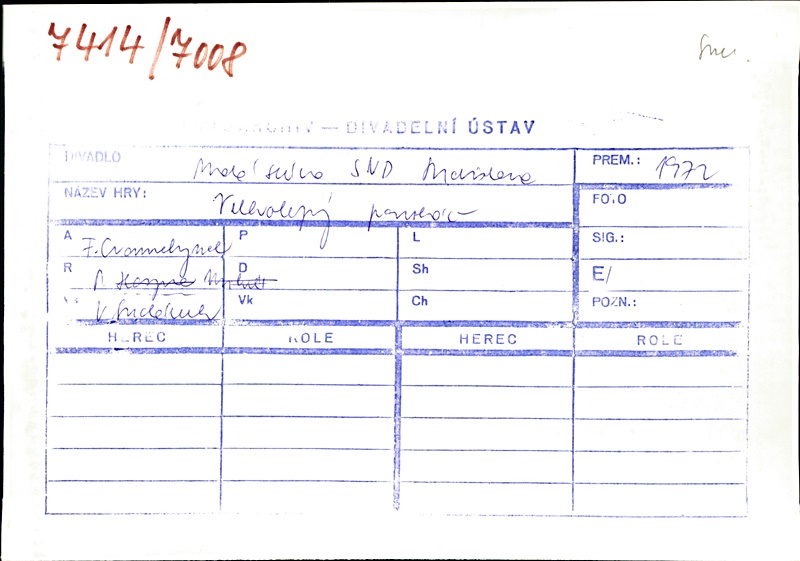 7414/7008
ARCHIV — DIVADELNÍ ÚSTAV
DIVADLO Malá scéna SND Bratislava PREM.: 1972
NÁZEV HRY: Velkolepý paroháč FOTO
A F. Crommelynck P L SIG.:
R P. Haspra D Sh E/
V. Vk Ch POZN.:
HEREC ROLE HEREC ROLE